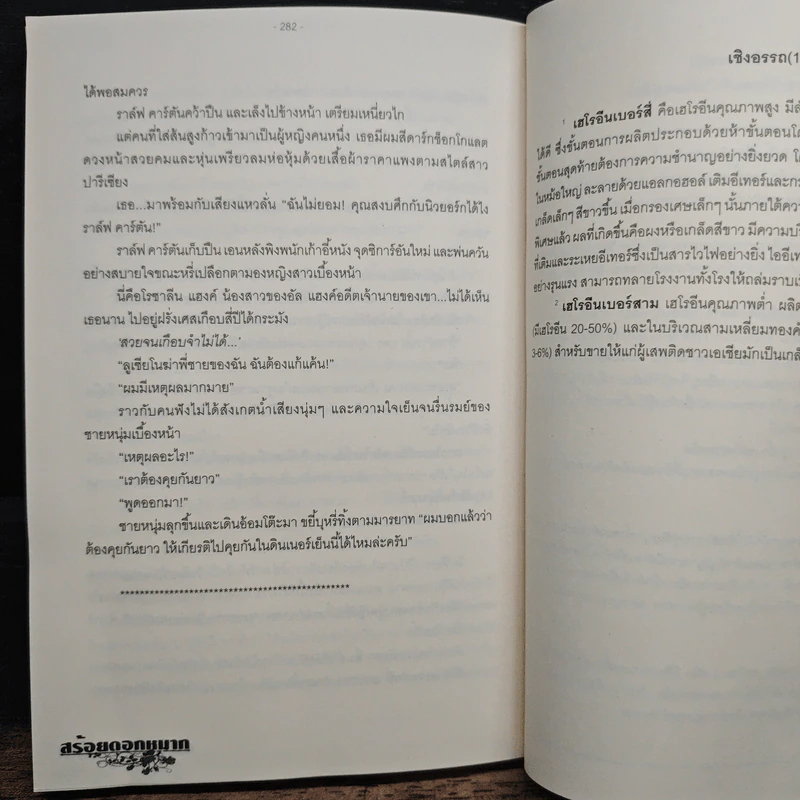 - 282 -
ได้พอสมควร
ราล์ฟ คาร์ตันคว้าปืน และเล็งไปข้างหน้า เตรียมเหนี่ยวไก
แต่คนที่ใส่ส้นสูงก้าวเข้ามาเป็นผู้หญิงคนหนึ่ง เธอมีผมสีดาร์กช็อกโกแลต
ดวงหน้าสวยคมและหุ่นเพรียวลมห่อหุ้มด้วยเสื้อผ้าราคาแพงตามสไตล์สาว
ปารีเซียง
เธอ...มาพร้อมกับเสียงแหวลั่น “ฉันไม่ยอม! คุณสงบศึกกับนิวยอร์กได้ไง
ราล์ฟ คาร์ตัน!”
ราล์ฟ คาร์ตันเก็บปืน เอนหลังพิงพนักเก้าอี้หนัง จุดซิการ์อันใหม่ และพ่นควัน
อย่างสบายใจขณะหรี่เปลือกตามองหญิงสาวเบื้องหน้า
นี่คือโรซาลีน แฮงค์ น้องสาวของอัล แฮงค์อดีตเจ้านายของเขา...ไม่ได้เห็น
เธอนาน ไปอยู่ฝรั่งเศสเกือบสี่ปีได้กระมัง
‘สวยจนเกือบจำไม่ได้...’
“ลูเซียโนฆ่าพี่ชายของฉัน ฉันต้องแก้แค้น!”
“ผมมีเหตุผลมากมาย”
ราวกับคนฟังไม่ได้สังเกตน้ำเสียงนุ่มๆ และความใจเย็นจนรื่นรมย์ของ
ชายหนุ่มเบื้องหน้า
“เหตุผลอะไร!”
“เราต้องคุยกันยาว”
“พูดออกมา!”
ชายหนุ่มลุกขึ้นและเดินอ้อมโต๊ะมา ขยี้บุหรี่ทิ้งตามมารยาท “ผมบอกแล้วว่า
ต้องคุยกันยาว ให้เกียรติไปคุยกันในดินเนอร์เย็นนี้ได้ไหมล่ะครับ”
************************************************
สร้อยดอกหมาก
เชิงอรรถ(1
1 เฮโรอีนเบอร์สี่ คือเฮโรอีนคุณภาพสูง
ได้ดี ซึ่งขั้นตอนการผลิตประกอบด้วยห้าขั้นตอน
ขั้นตอนสุดท้ายต้องการความชำนาญอย่างยิ่งยวด
ในหม้อใหญ่ ละลายด้วยแอลกอฮอล์ เติมอีเทอร์และ
เกล็ดเล็กๆ สีขาวขึ้น เมื่อกรองเศษเล็กๆ นั้นภายใต้
พิเศษแล้ว ผลที่เกิดขึ้นคือผงหรือเกล็ดสีขาว
ที่เติมและระเหยอีเทอร์ซึ่งเป็นสารไวไฟอย่างยิ่ง
อย่างรุนแรง สามารถทลายโรงงานทั้งโรงให้ถล่ม
2 เฮโรอีนเบอร์สาม เฮโรอีนคุณภาพต่ำ
(มีเฮโรอีน 20-50%) และในบริเวณสามเหลี่ยม
3-6%) สำหรับขายให้แก่ผู้เสพติดชาวเอเชียมักเป็น